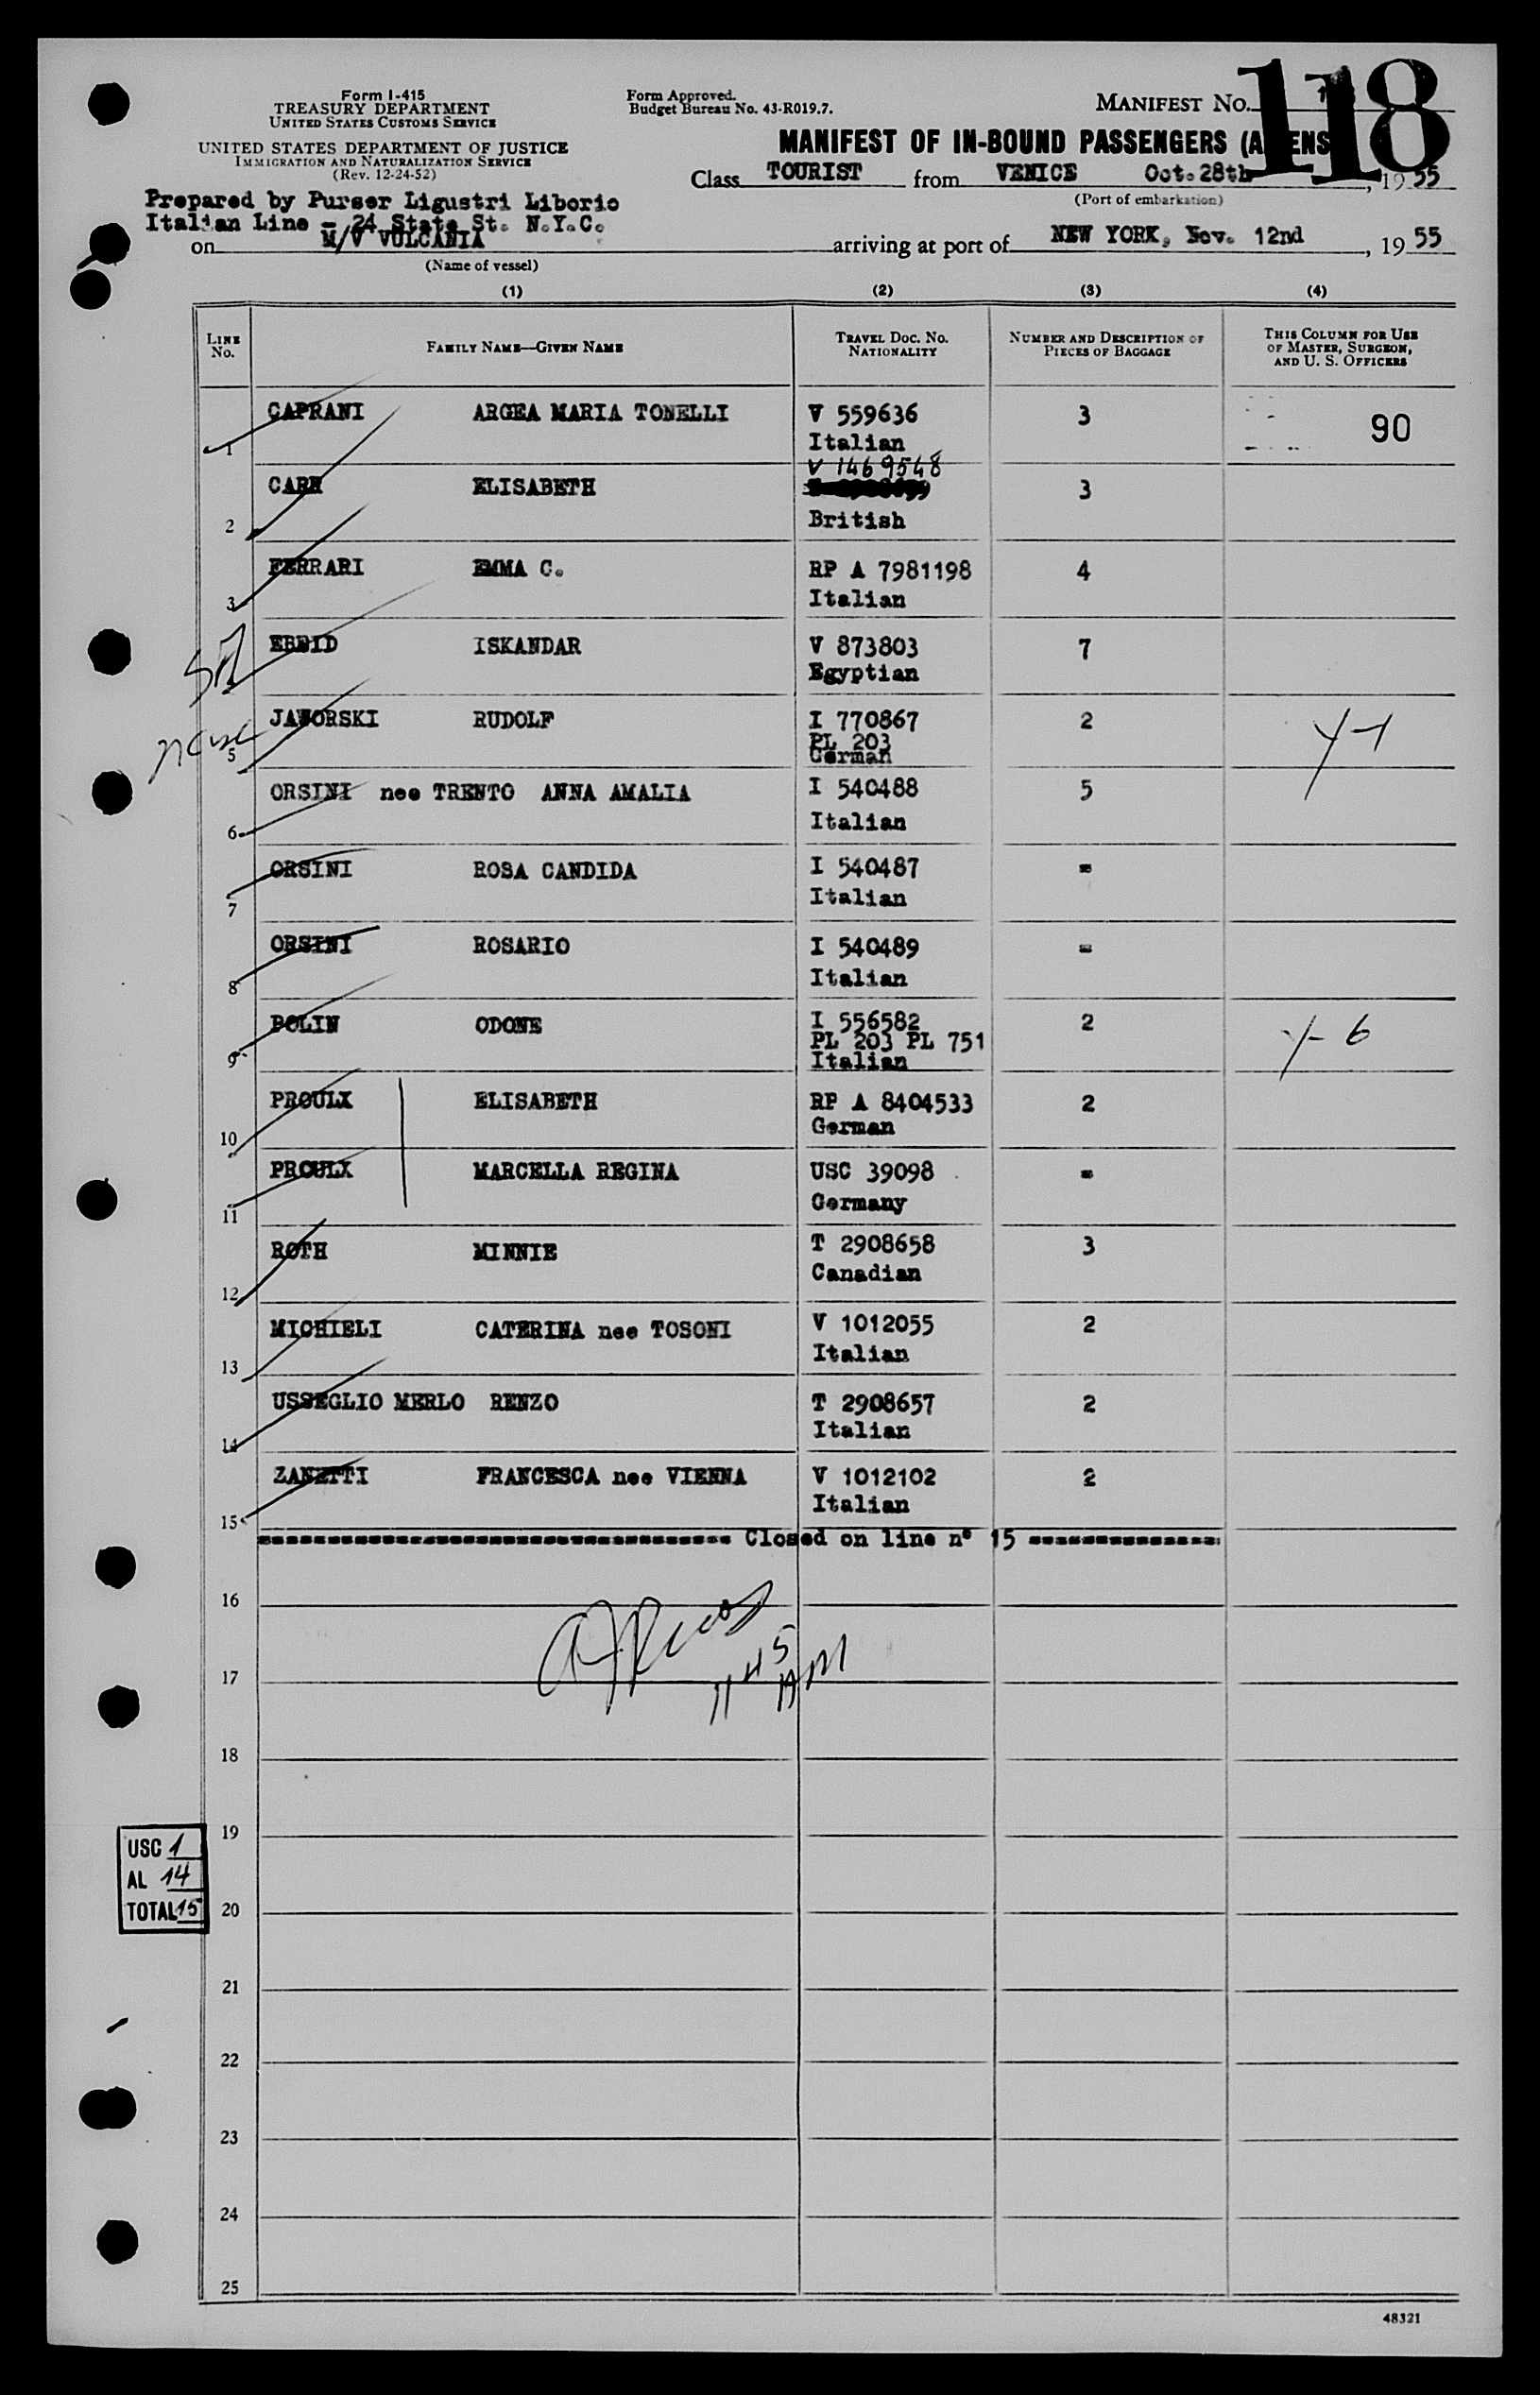 Form I-415
TREASURY DEPARTMENT
UNITED STATES CUSTOMS SERVICE
UNITED STATES DEPARTMENT OF JUSTICE
IMMIGRATION AND NATURALIZATION SERVICE
(Rev. 12-24-52)
Form Approved.
Budget Bureau No. 43-R019.7.
MANIFEST No. 118
MANIFEST OF IN-BOUND PASSENGERS
Class TOURIST from VENICE Oct. 28th, 1955
(Port of embarkation)
Prepared by Purser Ligustri Liborio
Italian Line - 24 State St. N.Y.C.
on M/V VULCANIA arriving at port of NEW YORK, Nov. 12nd, 1955
(Name of vessel)
(1) (2) (3) (4)
LINE No. FAMILY NAME—GIVEN NAME TRAVEL DOC. No. NATIONALITY NUMBER AND DESCRIPTION OF PIECES OF BAGGAGE THIS COLUMN FOR USE OF MASTER, SURGEON, AND U. S. OFFICERS
1 CAPRANI ARGEA MARIA TONELLI V 559636 3 90
Italian
V 1469548
2 CARR ELISABETH 3
British
3 FERRARI EMMA C. RP A 7981198 4
Italian
EBEID ISKANDAR V 873803 7
Egyptian
5 JAWORSKI RUDOLF I 770867 2
PL 203
German
6 ORSINI nee TRENTO ANNA AMALIA I 540488 5
Italian
7 ORSINI ROSA CANDIDA I 540487 =
Italian
8 ORSINI ROSARIO I 540489 =
Italian
9 POLIN ODONE I 556582 2
PL 203 PL 751
Italian
10 PROULX ELISABETH RP A 8404533 2
German
11 PROULX MARCELLA REGINA USC 39098 =
Germany
12 ROTH MINNIE T 2908658 3
Canadian
13 MICHIELI CATERINA nee TOSONI V 1012055 2
Italian
14 USSEGLIO MERLO RENZO T 2908657 2
Italian
15 ZANETTI FRANCESCA nee VIENNA V 1012102 2
Italian
Closed on line n° 15
16
17
11 45 AM
18
19
20
21
22
23
24
25
USC 1
AL 14
TOTAL 15
48321